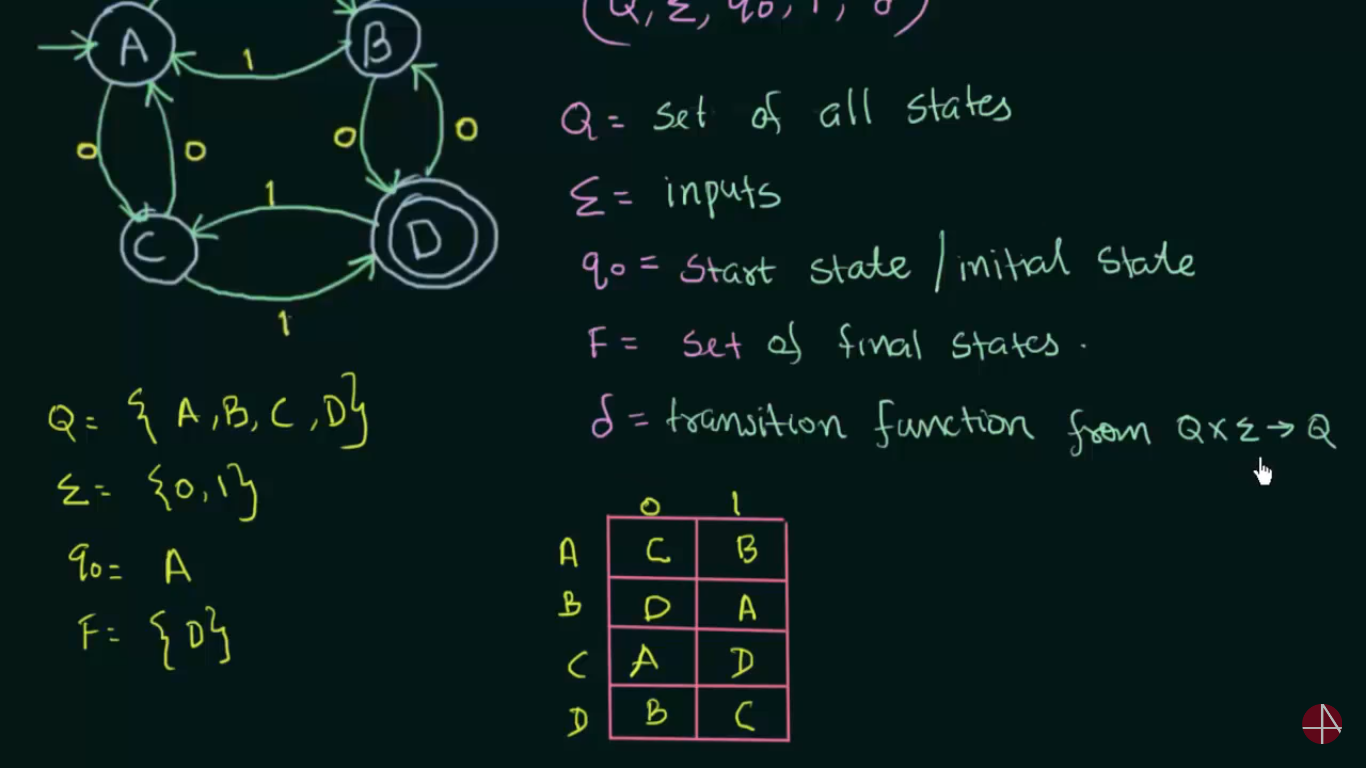 (Q, Σ, q0, F, δ)
A
B
1
0
0
0
0
1
C
D
1
Q = set of all states
Σ = inputs
q0 = start state / initial state
F = set of final states.
δ = transition function from Q×Σ→Q
Q = { A, B, C, D}
Σ = {0, 1}
q0 = A
F = {D}
0 1
A C B
B D A
C A D
D B C